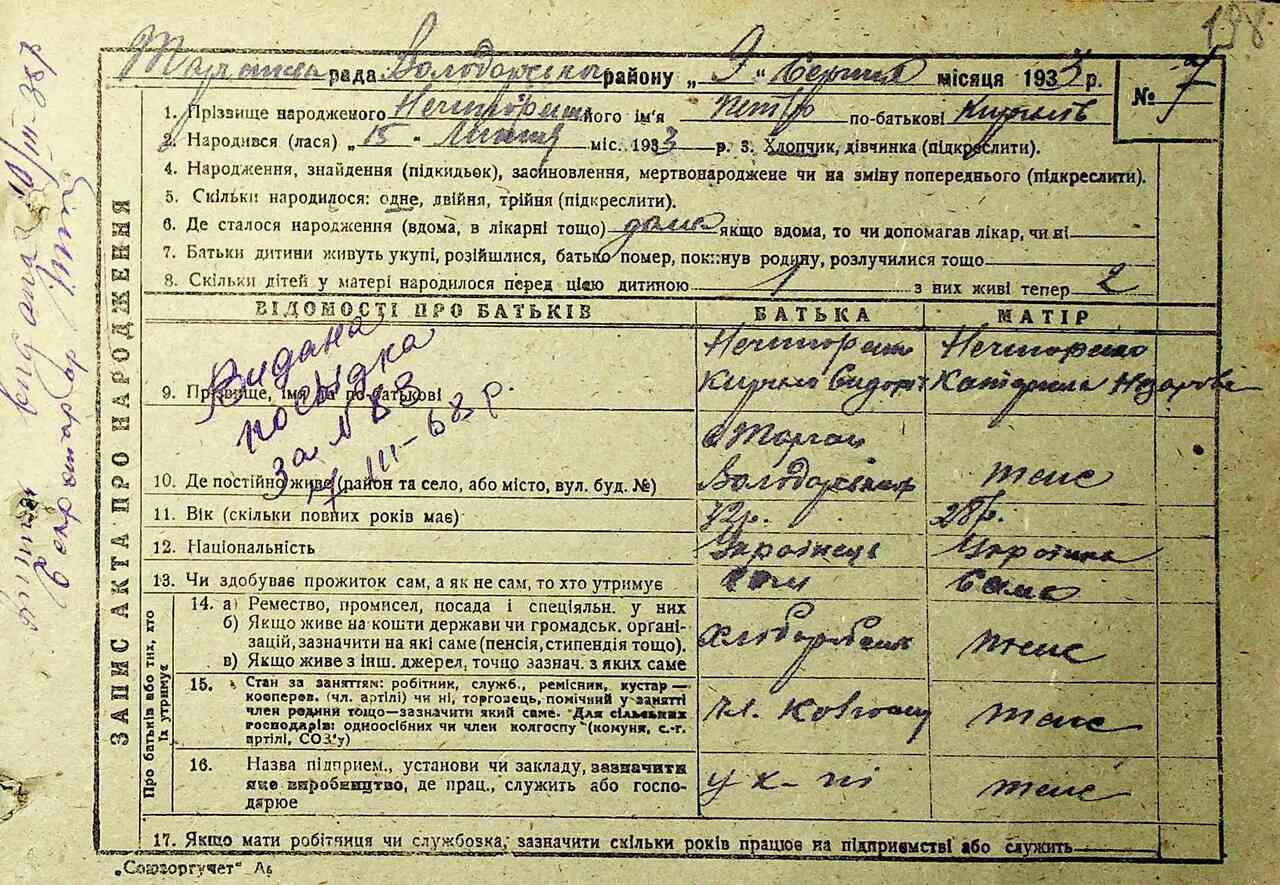 рада Володарського району „ 9 “ Серпня місяця 1933 р.
№ 7
1. Прізвище народженого Нечипоренко його ім'я Петро по-батькові Кирилів
2. Народився (лася) „ 15 “ Липня міс. 1933 р. 3. Хлопчик, дівчинка (підкреслити).
4. Народження, знайдення (підкидьок), засиновлення, мертвонароджене чи на зміну попереднього (підкреслити).
5. Скільки народилося: одне, двійня, трійня (підкреслити).
6. Де сталося народження (вдома, в лікарні тощо) дома якщо вдома, то чи допомагав лікар, чи ні
7. Батьки дитини живуть укупі, розійшлися, батько помер, покинув родину, розлучилися тощо
8. Скільки дітей у матері народилося перед цією дитиною 1 з них живі тепер 2
ВІДОМОСТІ ПРО БАТЬКІВ БАТЬКА МАТІР
9. Прізвище, імя та по-батькові
Нечипоренко Кирило Сидорів
Нечипоренко Катерина Назарова
Видана
посвідка
за №
III-68 р
10. Де постійно живе (район та село, або місто, вул. буд. №)
с Торган
Володарського
теж
11. Вік (скільки повних років має) 42р. 28р.
12. Національність Українець Українка
13. Чи здобуває прожиток сам, а як не сам, то хто утримує сам сама
14. а) Ремество, промисел, посада і спеціяльн. у них
б) Якщо живе на кошти держави чи громадськ. органі-
зацій, зазначити на які саме (пенсія, стипендія тощо).
в) Якщо живе з інш. джерел, точно зазнач. з яких саме
хлібороб теж
15. Стан за заняттям: робітник, служб., ремісник, кустар—
кооперов. (чл. артілі) чи ні, торговець, помічний у занятті
член родини тощо—зазначити який саме. Для сільських
господарів: одноосібних чи член колгоспу (комуна, с.-г.
артілі, СОЗ'у)
чл. Колгоспу теж
16. Назва підприєм., установи чи закладу, зазначити
яке виробництво, де прац., служить або госпо-
дарює
у к-пі теж
17. Якщо мати робітниця чи службовка, зазначити скільки років працює на підприємстві або служить
ЗАПИС АКТА ПРО НАРОДЖЕННЯ
Про батьків або тих, хто
їх утримує
„Союзоргучет“